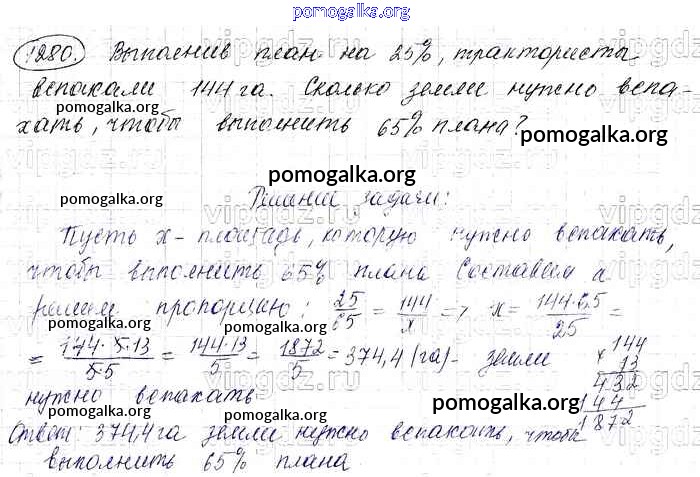 pomogalka.org
1280. Выполнив план на 25%, трактористы
вспахали 144 га. Сколько земли нужно вспа-
pomogalka.org
хать, чтобы выполнить 65% плана?
pomogalka.org
pomogalka.org pomogalka.org
Решение задачи:
Пусть x - площадь, которую нужно вспахать,
pomogalka.org
чтобы выполнить 65% плана Составим и
решим пропорцию: 25/65 = 144/x => x = 144·65/25 =
pomogalka.org pomogalka.org
= 144·5·13/5·5 = 144·13/5 = 1872/5 = 374,4 (га) - земли
144
× 13
432
144
1872
нужно вспахать
pomogalka.org pomogalka.org
Ответ: 374,4 га земли нужно вспахать, чтобы
выполнить 65% плана
pomogalka.org